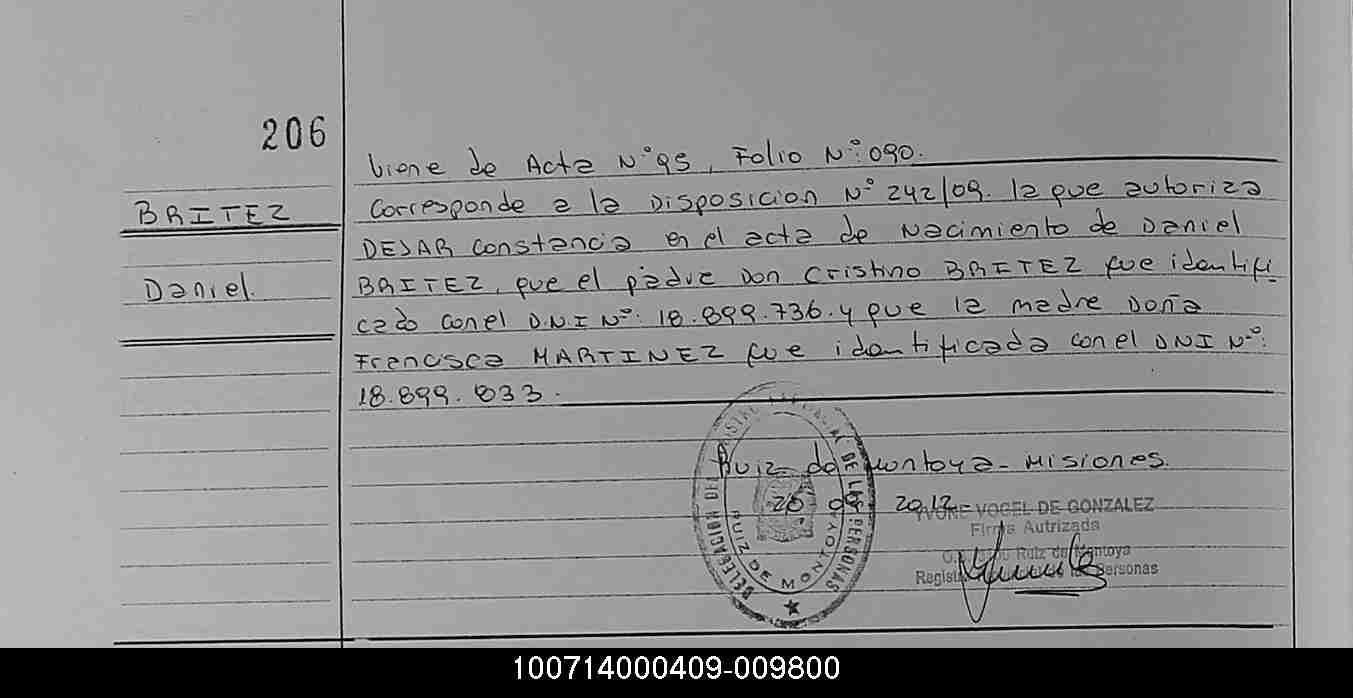 206
BRITEZ
Daniel.
Viene de Acta N° 95, Folio N°: 090.
Corresponde a la Disposicion N° 242/09. la que autoriza
DEJAR constancia en el acta de Nacimiento de Daniel
BRITEZ, que el padre Don Cristino BRITEZ fue identifi
cado con el D.N.I N°: 18.899.736. y que la madre Doña
Francisca MARTINEZ fue identificada con el DNI N°:
18.899.833.
Ruiz de Montoya - Misiones.
09 2012
IVONE VOGEL DE GONZALEZ
Firma Autrizada
Ruiz de Montoya
Personas
DELEGACION DEL PERSONAS
RUIZ DE MONTOYA
100714000409-009800